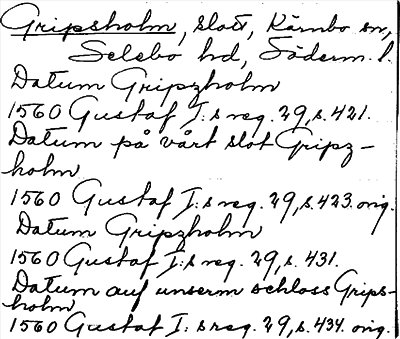 Gripsholm, slott, Kärnbo sn,
Selebo hd, Söderm. l.
Datum Gripzholm
1560 Gustaf I:s reg. 29, s. 421.
Datum på vårt slot Gripz-
holm
1560 Gustaf I:s reg. 29, s. 423. orig.
Datum Gripzholm
1560 Gustaf I:s reg. 29, s. 431.
Datum auf unserm schloss Grips-
holm
1560 Gustaf I:s reg. 29, s. 434. orig.